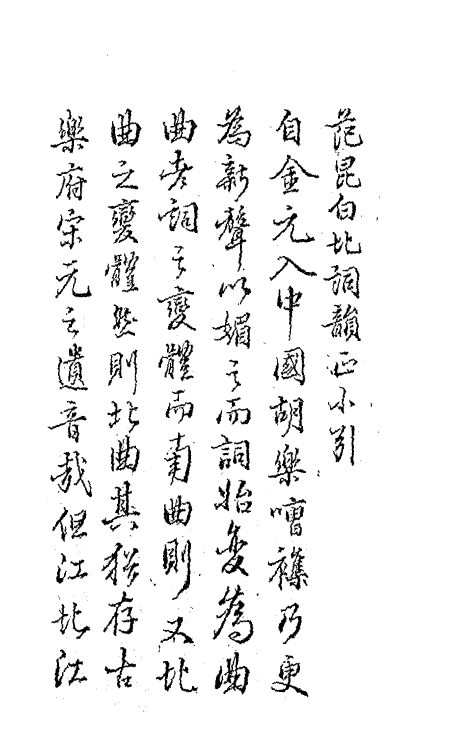 范昆白北詞韻正小引
自金元入中國胡樂嘈雜乃更
為新聲以媚之而詞始变為曲
曲者詞之變體而南曲則又北
曲之變體然則北曲其猶存古
樂府宋元之遺音哉但江北江